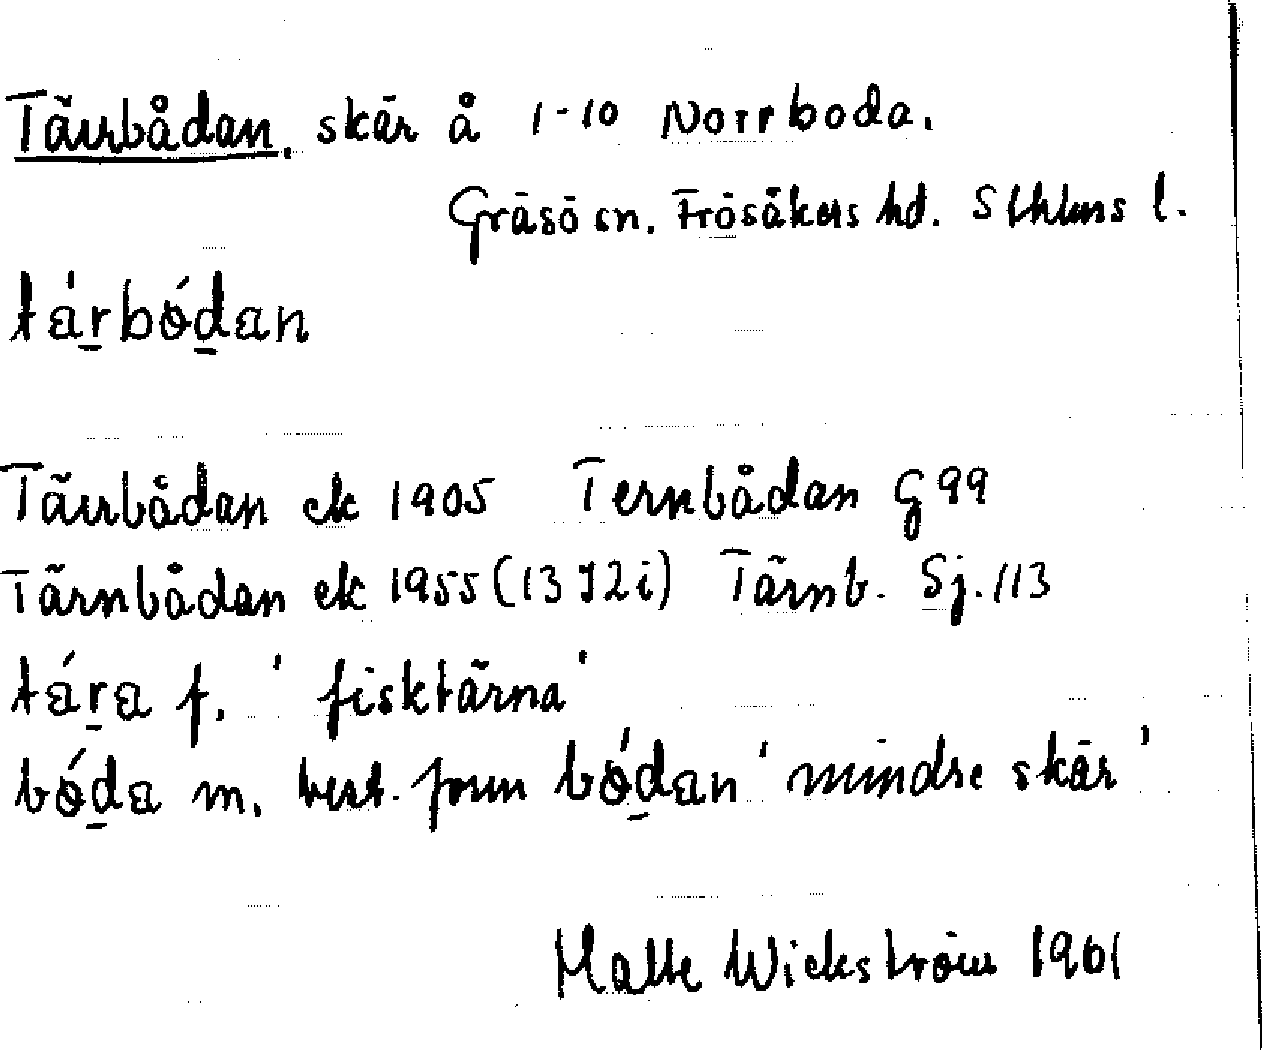 Tärbådan, skär å 1-10 Norrboda.
Gräsö sn. Frösåkers hd. Sthlms l.
tárbódan
Tärbådan ek 1905 Ternbådan G 99
Tärnbådan ek 1955 (13 I 2 i) Tärnb. Sj. 113
tára f. ' fisktärna '
bóda m. best. form bódan ' mindre skär '
Malte Wickström 1961